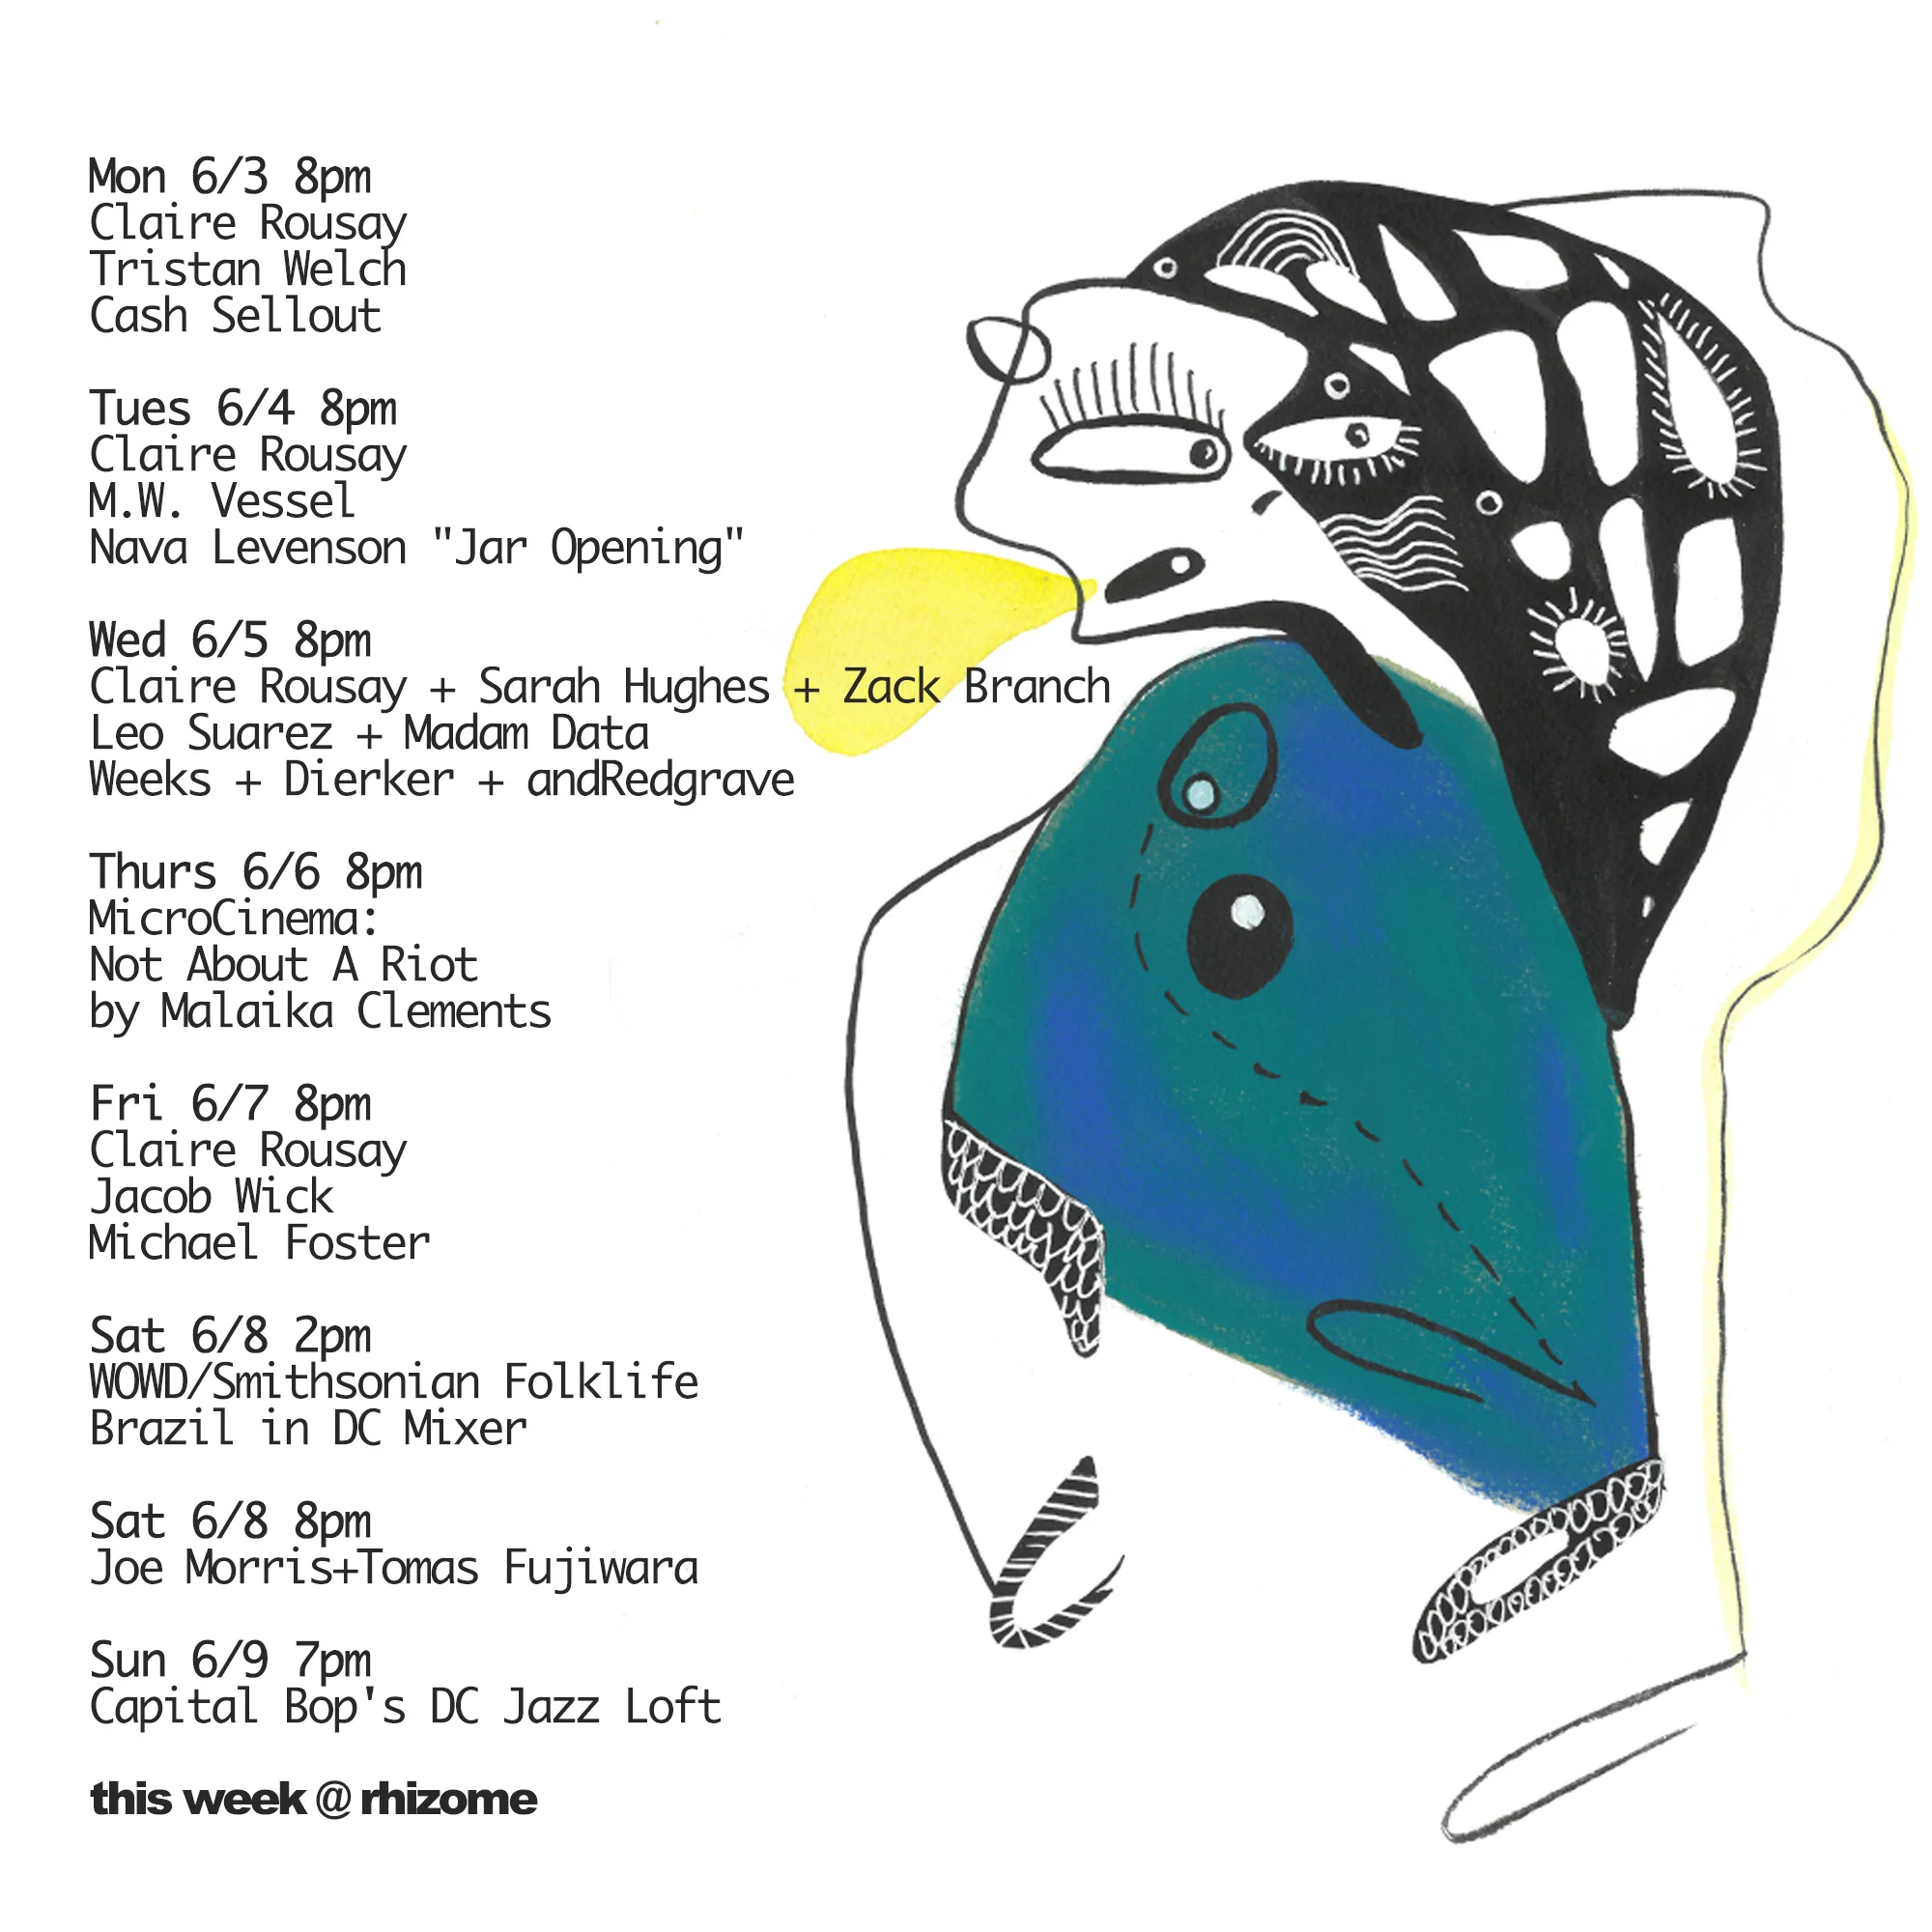 Mon 6/3 8pm
Claire Rousay
Tristan Welch
Cash Sellout
Tues 6/4 8pm
Claire Rousay
M.W. Vessel
Nava Levenson "Jar Opening"
Wed 6/5 8pm
Claire Rousay + Sarah Hughes + Zack Branch
Leo Suarez + Madam Data
Weeks + Dierker + andRedgrave
Thurs 6/6 8pm
MicroCinema:
Not About A Riot
by Malaika Clements
Fri 6/7 8pm
Claire Rousay
Jacob Wick
Michael Foster
Sat 6/8 2pm
WOWD/Smithsonian Folklife
Brazil in DC Mixer
Sat 6/8 8pm
Joe Morris+Tomas Fujiwara
Sun 6/9 7pm
Capital Bop's DC Jazz Loft
this week @ rhizome